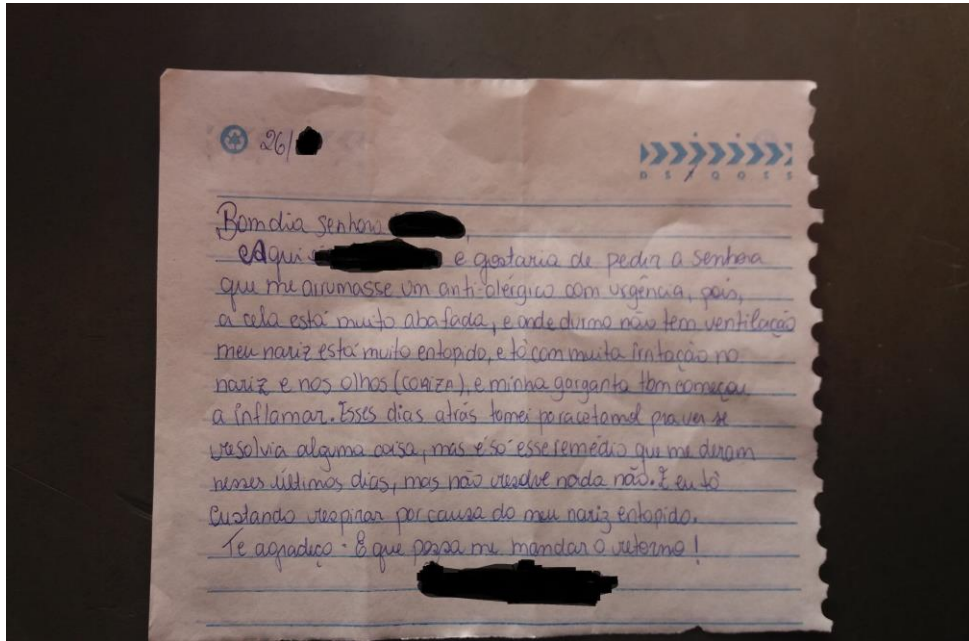 26/
Bom dia senhora
Aqui e gostaria de pedir a senhora
que me arrumasse um anti-alérgico com urgência, pois,
a cela está muito abafada, e onde durmo não tem ventilação
meu nariz está muito entopido, e tô com muita irritação no
nariz e nos olhos (CORIZA), e minha garganta tbm começou
a inflamar. Esses dias atrás tomei paracetamol pra ver se
resolvia alguma coisa, mas é só esse remédio que me deram
nesses últimos dias, mas não resolve nada não. E eu tô
custando respirar por causa do meu nariz entopido.
Te agradeço. E que possa me mandar o retorno!